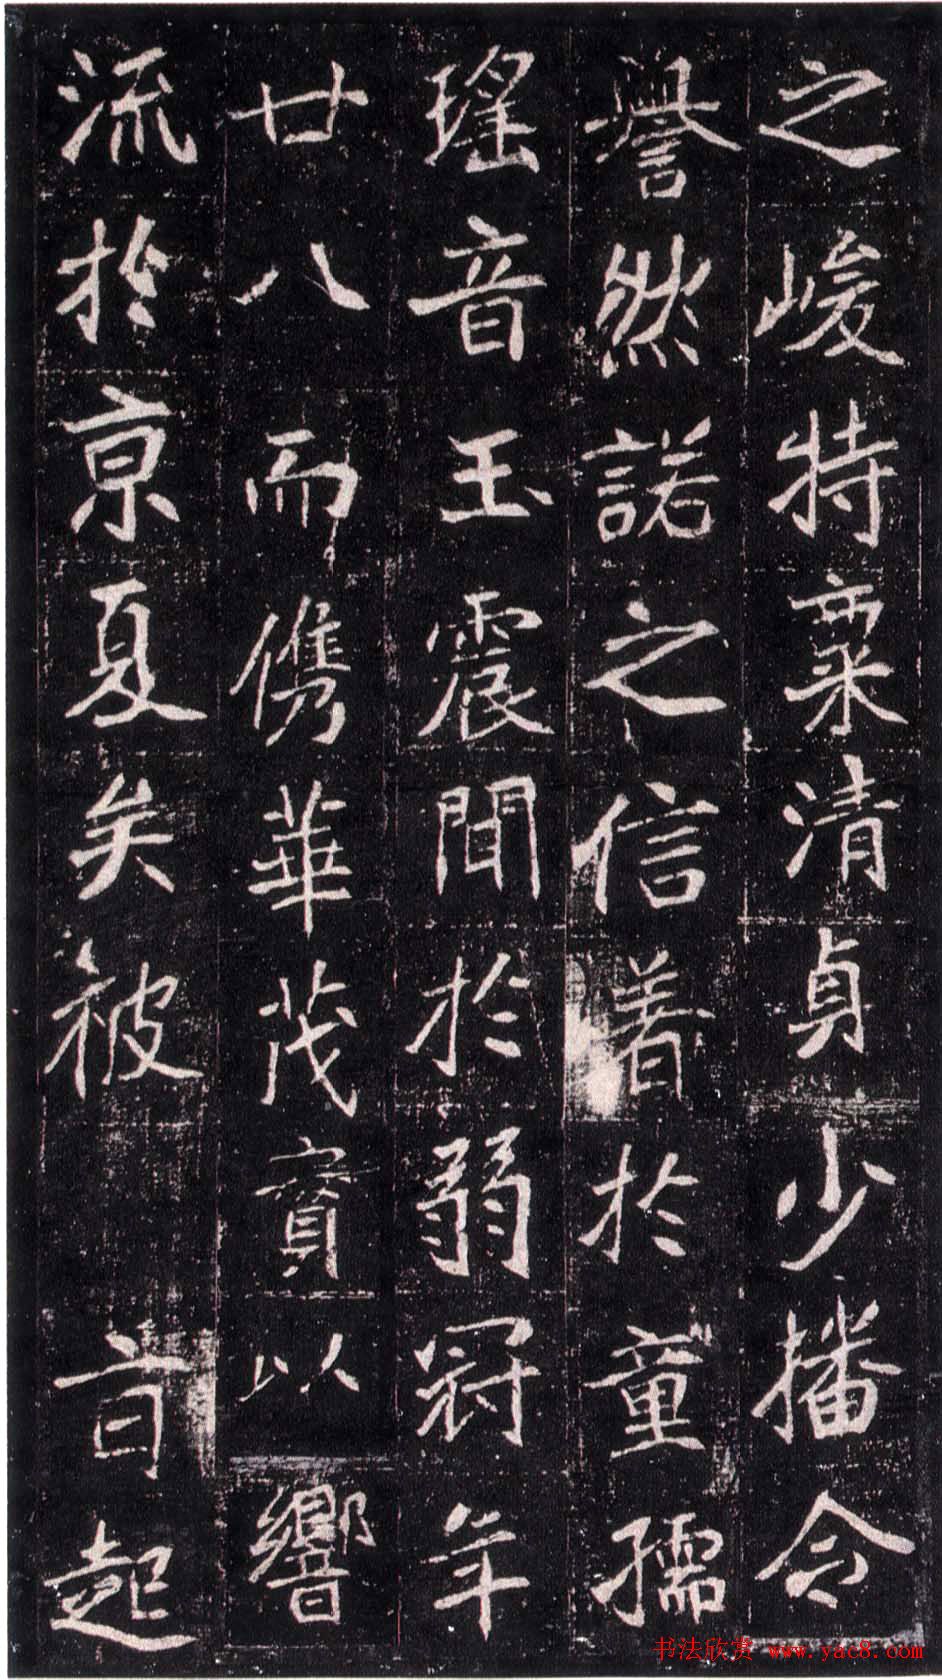 之峻特稟清貞少播令
譽然諾之信著於童孺
瑤音玉震聞於弱冠年
廿八而儁華茂實以響
流於京夏矣被 旨起
书法欣赏 www.yac8.com